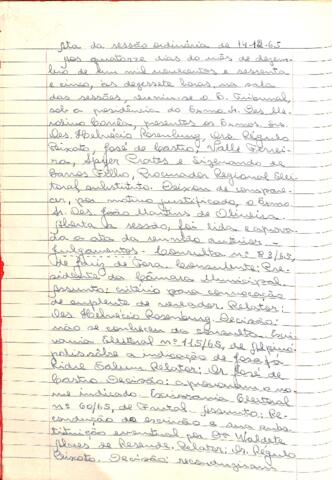 Ata da sessão ordinária de 14-12-65
Aos quatorze dias do mês de dezem-
bro de um mil novecentos e sessenta
e cinco, às dezessete horas, na sala
das sessões, reuniu-se o E. Tribunal,
sob a presidência do Exmo. Sr. Des.
Corrêa, presentes os Exmos. Srs.
Des. Helvécio Rosenburg, Drs. Régulo
Peixoto, José de Castro, Valle Ferrei-
ra, Prates e Sizenando de
Barros Filho, Procurador Regional Elei-
toral substituto. Deixou de compare-
cer, por motivo justificado, o Exmo.
Sr. Des. João Martins de Oliveira.
Aberta a sessão, foi lida e aprova-
da a ata da reunião anterior. -
Julgamentos. - Consulta nº 83/65,
de Juiz de Fora. Consulente: Pre-
sidente da Câmara Municipal.
Assunto: critério para convocação
de suplente de vereador. Relator:
Des. Helvécio Rosenburg. Decisão:
não se conheceu da consulta. Escri-
vania Eleitoral nº 115/65, de Alpinó-
polis sôbre a indicação de José
Salum. Relator: Dr. José de
Castro. Decisão: aprovaram o no-
me indicado. Escrivania Eleitoral
nº 60/65, de Frutal. Assunto: Re-
condução do escrivão e sua subs-
tituição eventual por Dª Waldete
Alves de Resende. Relator: Dr. Régulo
Peixoto. Decisão: reconduziram